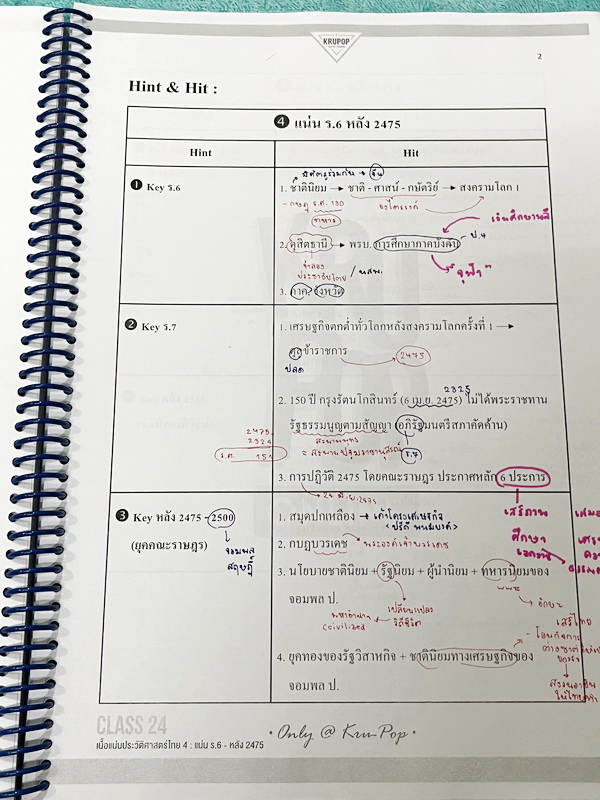 KRUPOP
2
Hint & Hit :
❹ แน่น ร.6 หลัง 2475
Hint
Hit
❶ Key ร.6
จีน
1. ชาตินิยม → ชาติ - ศาสน์ - กษัตริย์ → สงครามโลก 1
- กบฏ ร.ศ. 130
ธงไตรรงค์
ทหาร
ป.4
2. ดุสิตธานี → พรบ. การศึกษาภาคบังคับ
จำลอง
ประชาธิปไตย / นสพ.
"จุฬาฯ"
3. ภาค, จังหวัด
❷ Key ร.7
1. เศรษฐกิจตกต่ำทั่วโลกหลังสงครามโลกครั้งที่ 1 →
ดุลข้าราชการ
2475
ปลด
2325
2. 150 ปี กรุงรัตนโกสินทร์ (6 เม.ย. 2475) ไม่ได้พระราชทาน
รัฐธรรมนูญตามสัญญา (อภิรัฐมนตรีสภาคัดค้าน)
สะพานพุทธ
= สะพานปฐมบรมราชานุสรณ์
ร.7
2475
2324
ร.ศ. 151
3. การปฏิวัติ 2475 โดยคณะราษฎร ประกาศหลัก 6 ประการ
24 มิ.ย. 2475
เสรีภาพ
ศึกษา
เอกราช
❸ Key หลัง 2475 - 2500
(ยุคคณะราษฎร)
จอมพล
สฤษดิ์
1. สมุดปกเหลือง → เค้าโครงเศรษฐกิจ
<ปรีดี พนมยงค์>
2. กบฏบวรเดช พระองค์เจ้าบวรเดช
3. นโยบายชาตินิยม + รัฐนิยม + ผู้นำนิยม + ทหารนิยมของ
จอมพล ป.
เปลี่ยนแปลง
วิถีชีวิต
มหาอำนาจ
civilized
เสรีไทย
4. ยุคทองของรัฐวิสาหกิจ + ชาตินิยมทางเศรษฐกิจของ
จอมพล ป.
CLASS 24
เนื้อแน่นประวัติศาสตร์ไทย 4 : แน่น ร.6 - หลัง 2475
• Only @ Kru-Pop •